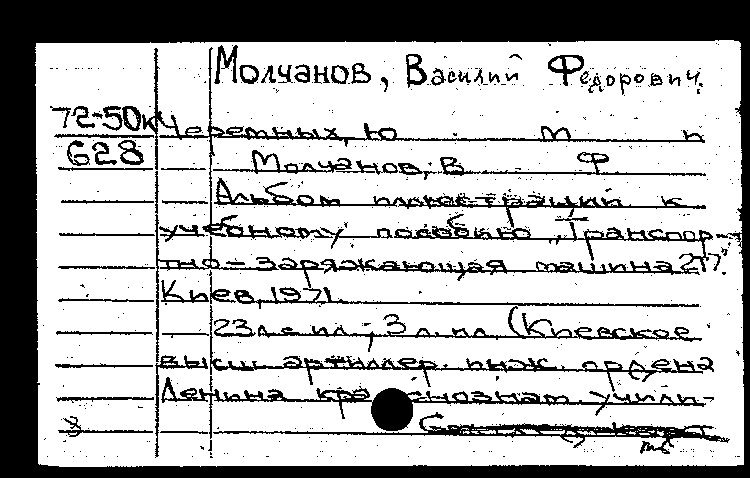 Молчанов, Василий Федорович.
72-50кч
Черемных, Ю М и
628
Молчанов, В Ф
Альбом иллюстраций к
учебному пособию „Транспор-
тно-заряжающая машина 2Т7".
Киев, 1971.
23л. с ил.; 3 л. ил (Киевское
высш артиллер. инж. ордена
Ленина краснознам. учили-